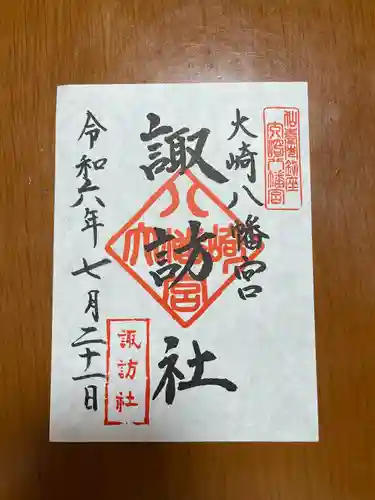 大崎八幡宮
諏訪社
令和六年七月二十一日
大崎八幡宮
諏訪社